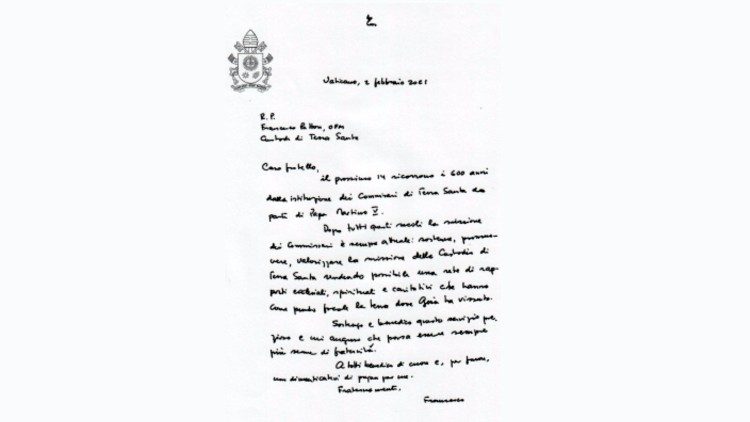 Vaticano, 2 febbraio 2021
R. P.
Francesco Patton, OFM
Custodi di Terra Santa
Caro fratello,
il prossimo 14 ricorrono i 600 anni
dalla istituzione dei Commissari di Terra Santa da
parte di Papa Martino V.
Dopo tutti questi secoli la missione
dei Commissari è sempre attuale: sostenere, promuo-
vere, valorizzare la missione della Custodia di
Terra Santa rendendo possibile una rete di rap-
porti ecclesiali, spirituali e caritativi che hanno
come punto focale la terra dove Gesù ha vissuto.
Sostengo e benedico questo servizio pre-
zioso e mi auguro che possa essere sempre
più seme di fraternità.
A tutti benedico di cuore e, per favore,
non dimenticatevi di pregare per me.
Fraternamente,
Francesco